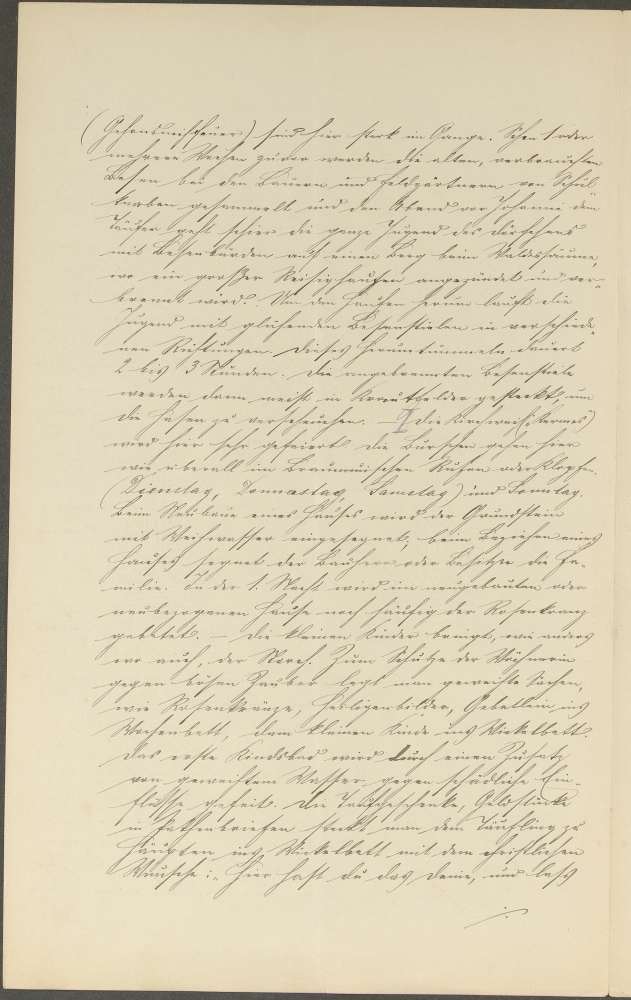 (Johannisfeuer) sind hier stark im Gange. Schon 1 oder
mehrere Wochen zuvor werden die alten, verbrauchten
Besen bei den Bauern und Feldgärtnern von Schul-
knaben gesammelt und den Abend vor Johanni dem
Täufer geht schier die ganze Jugend des Dörfchens
mit Besenbürden auf einen Berg beim Waldessaume,
wo ein großer Reisighaufen angezündet und ver-
brennt wird. Um den Haufen herum lauft die
Jugend mit glühenden Besenstielen in verschiede-
nen Richtungen. Dieses Herumtummeln dauert
2 bis 3 Stunden. Die angebrannten Besenstiele
werden dann meist in Krautfelder gesteckt, um
die Hasen zu verscheuchen. — Die Kirchweih (Kermes)
wird hier sehr gefeiert. Die Burschen gehen hier
wie überall im Braunauischen Rufen oder Klopfen.
(Dienstag, Donnastag, Samstag) und Sonntag.
Beim Neubaue eines Hauses wird der Grundstein
mit Weihwasser eingesegnet; beim Beziehen eines
Hauses segnet der Bauherr oder Besitzer die Fa-
milie. In der 1. Nacht wird im neugebauten oder
neubezogenen Hause noch häufig der Rosenkranz
gebetet. — Die kleinen Kinder bringt, wie anders
wo auch, der Storch. Zum Schutze der Wöchnerin
gegen bösen Zauber legt man geweihte Sachen,
wie Rosenkränze, Heiligenbilder, Gebetlein ins
Wochenbett, dem kleinen Kinde ins Wickelbett.
Das erste Kindsbad wird durch einen Zusatz
von geweihtem Wasser gegen schädliche Ein-
flüsse gefeit. Die Taufgeschenke, Geldstücke
in Pathenbriefen steckt man dem Täufling zu
Häupten ins Wickelbett mit dem christlichen
Wunsche: „Hier hast du das Deine, und lass